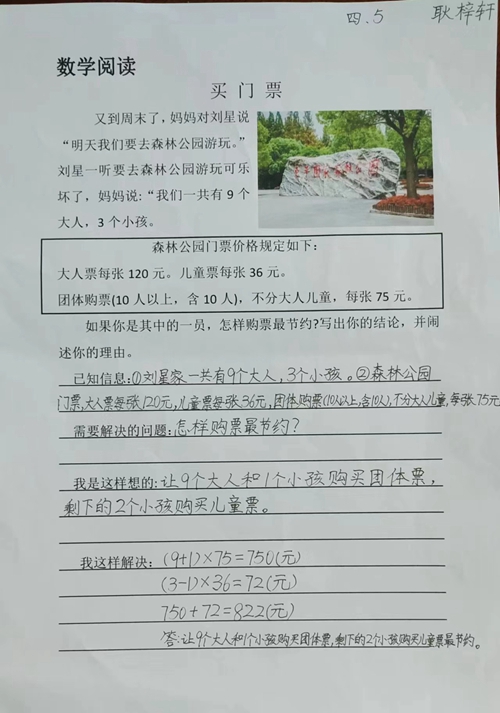 四.5 耿梓轩
数学阅读
买门票
又到周末了，妈妈对刘星说
“明天我们要去森林公园游玩。”
刘星一听要去森林公园游玩可乐
坏了，妈妈说：“我们一共有 9 个
大人，3 个小孩。
森林公园门票价格规定如下：
大人票每张 120 元。儿童票每张 36 元。
团体购票(10 人以上，含 10 人)，不分大人儿童，每张 75 元。
如果你是其中的一员，怎样购票最节约?写出你的结论，并阐
述你的理由。
已知信息:①刘星家一共有9个大人,3个小孩。②森林公园
门票,大人票每张120元,儿童票每张36元,团体购票(10人以上,含10人),不分大人儿童,每张75元
需要解决的问题:怎样购票最节约?
我是这样想的:让9个大人和1个小孩购买团体票,
剩下的2个小孩购买儿童票。
我这样解决:(9+1)×75=750(元)
(3-1)×36=72(元)
750+72=822(元)
答:让9个大人和1个小孩购买团体票,剩下的2个小孩购买儿童票最节约。